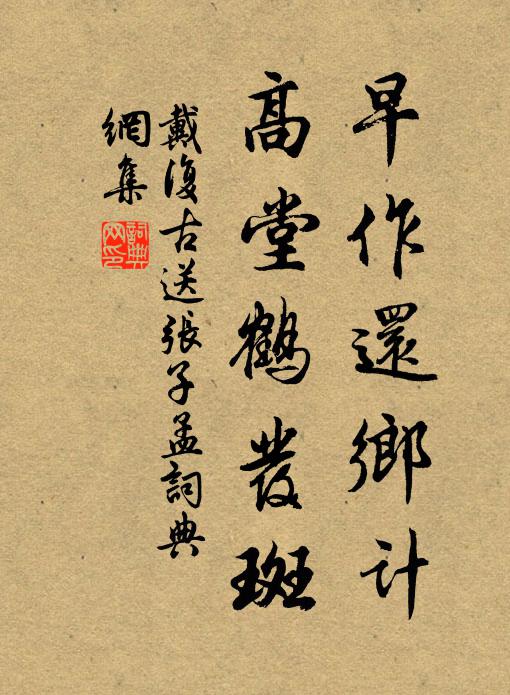 早作還鄉計
高堂鶴發斑
戴復古送張子孟詞典
網集
詞典
网印